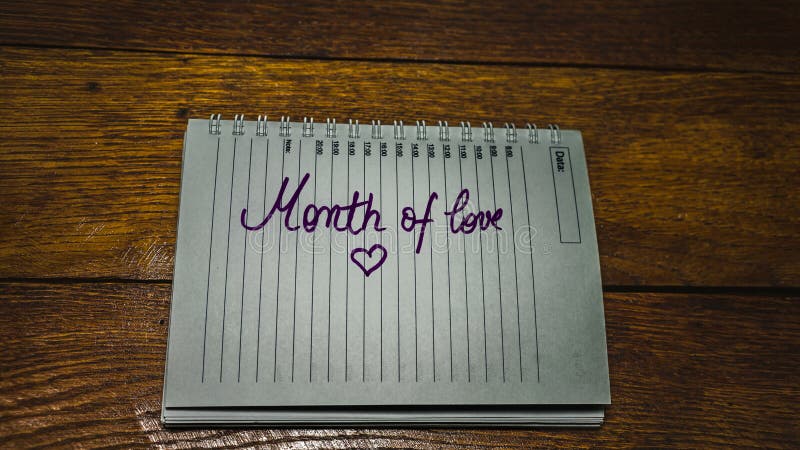 Data:
8:00
9:00
10:00
11:00
12:00
13:00
14:00
15:00
16:00
17:00
18:00
19:00
20:00
Note:
Month of love
dreamstime